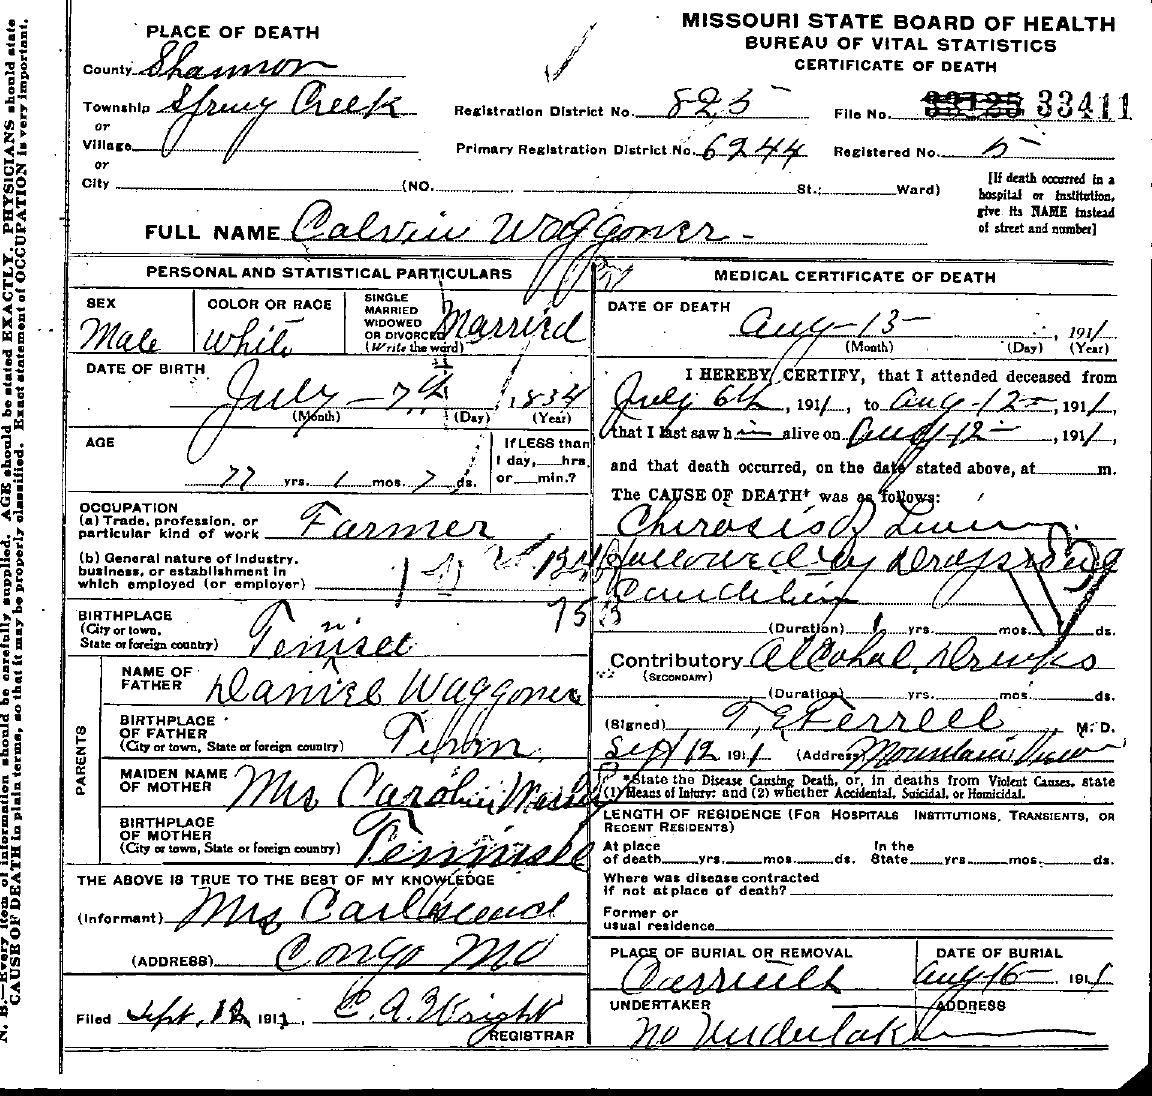 MISSOURI STATE BOARD OF HEALTH
BUREAU OF VITAL STATISTICS
CERTIFICATE OF DEATH
PLACE OF DEATH
County Shannon
Township Spring Creek
or
Village
or
City (NO. St.; Ward)
Registration District No. 825
File No. 33125 33411
Primary Registration District No. 6244
Registered No. 5
[If death occurred in a
hospital or institution,
give its NAME instead
of street and number]
FULL NAME Calvin Waggoner
PERSONAL AND STATISTICAL PARTICULARS
SEX
Male
COLOR OR RACE
White
SINGLE
MARRIED
WIDOWED
OR DIVORCED
(Write the word)
Married
DATE OF BIRTH
July - 7th 1834
(Month) (Day) (Year)
AGE
77 yrs. 1 mos. 7 ds.
If LESS than
1 day, hrs.
or min.?
OCCUPATION
(a) Trade, profession, or
particular kind of work Farmer
(b) General nature of industry,
business, or establishment in
which employed (or employer)
BIRTHPLACE
(City or town,
State or foreign country)
NAME OF
FATHER Daniel Waggoner
BIRTHPLACE
OF FATHER
(City or town, State or foreign country) Tenn
MAIDEN NAME
OF MOTHER Mrs Carolin
BIRTHPLACE
OF MOTHER
(City or town, State or foreign country)
PARENTS
THE ABOVE IS TRUE TO THE BEST OF MY KNOWLEDGE
(Informant) Mrs
(ADDRESS) Congo Mo
Filed Sept. 12 1911 C. A. Wright
REGISTRAR
MEDICAL CERTIFICATE OF DEATH
DATE OF DEATH
Aug - 13 - , 1911
(Month) (Day) (Year)
I HEREBY CERTIFY, that I attended deceased from
July 6th, 1911, to Aug - 12 -, 1911,
that I last saw him alive on Aug 12 -, 1911,
and that death occurred, on the date stated above, at m.
The CAUSE OF DEATH* was as follows:
Chirosis of Liver
followed by
(Duration) 1 yrs. mos. ds.
Contributory Alcohal Drinks
(SECONDARY)
(Duration) yrs. mos. ds.
(Signed) T. E. Ferrell M. D.
Sept 12 1911 (Address) Mountain View
*State the Disease Causing Death, or, in deaths from Violent Causes, state
(1) Means of Injury; and (2) whether Accidental, Suicidal, or Homicidal.
LENGTH OF RESIDENCE (FOR HOSPITALS INSTITUTIONS, TRANSIENTS, OR
RECENT RESIDENTS)
At place
of death yrs. mos. ds.
In the
State yrs. mos. ds.
Where was disease contracted
if not at place of death?
Former or
usual residence
PLACE OF BURIAL OR REMOVAL
DATE OF BURIAL
Aug 16 - 1911
UNDERTAKER
ADDRESS
No Undertaker
N. B.—Every item of information should be carefully supplied. AGE should be stated EXACTLY. PHYSICIANS should state
CAUSE OF DEATH in plain terms, so that it may be properly classified. Exact statement of OCCUPATION is very important.